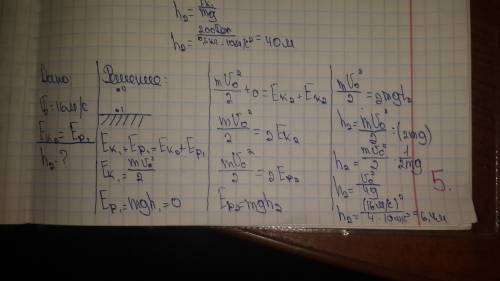 h₂ = Eₖ/mg
h₂ = 200 Дж / 0,5 кг · 10 м/с² = 40 м
Дано:
V₀ = 16 м/с
Eₖ₂ = Eₚ₂
h₂ - ?
Решение:
Eₖ₁ + Eₚ₁ = Eₖ₂ + Eₚ₁
Eₖ₁ = mV₀²/2
Eₚ₁ = mgh₁ = 0
mV₀²/2 + 0 = Eₖ₂ + Eₖ₂
mV₀²/2 = 2Eₖ₂
mV₀²/2 = 2Eₚ₂
Eₚ₂ = mgh₂
mV₀²/2 = 2mgh₂
h₂ = mV₀²/2 : (2mg)
h₂ = mV₀²/2 · 1/2mg
h₂ = V₀²/4g
h₂ = (16 м/с)² / 4 · 10 м/с² = 6,4 м
5.